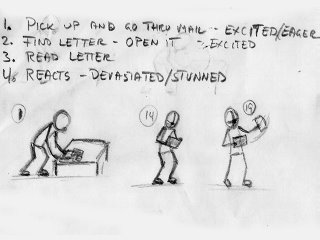 1. PICK UP AND GO THRU MAIL - EXCITED/EAGER
2. FIND LETTER - OPEN IT - EXCITED
3. READ LETTER
4. REACTS - DEVASTATED/STUNNED
1 14 19